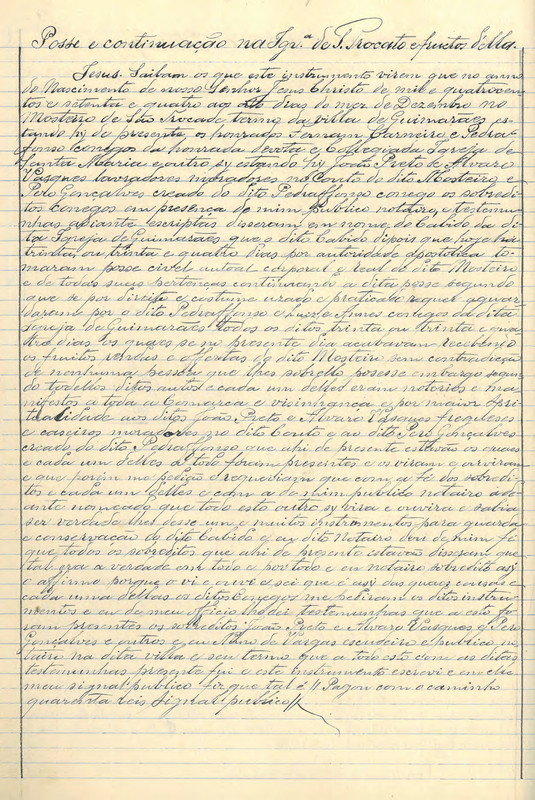 Posse e continuação na Igr.ª de S. Trocato e fructos d'ella.
Jesus. Saibam os que este instrumento virem que no anno
do Nascimento de nosso Senhor Jesus Christo de mil e quatrocen
tos e setenta e quatro aos oito dias do mez de Dezembro no
Mosteiro de São Trocade termo da villa de Guimarães es-
tando hy de presente, os honrados Fernam Carneiro e Pedra-
ffonso conegos da honrada devota e Collegiada Igreja de
Santa Maria e outro sy estando hy João Preto e Alvaro
Vasques lavradores moradores no Couto do dito Mosteiro e
Pero Gonçalves creado do dito Pedraffonso conego os sobredi-
tos Conegos em presença de mim publico notairo, e testemu-
nhas adiante escriptas disseram em nome do Cabido da di-
ta Igreja de Guimarães que o dito Cabido depois que hoje ha
trinta ou trinta e quatro dias por autoridade apostolica to-
maram posse civel autual corporal e real do dito Mosteiro
e de todas suas pertenças continuando a dita posse segundo
que se por direito e costume usado e praticado requer aguar
daram por o dito Pedraffonso e Luis Annes conegos da dita
Igreja de Guimarães todos os ditos trinta ou trinta e qua
tro dias os quaes se no presente dia acabavam recebendo
os fruitos rendas e offertas do dito Mosteiro sem contradição
de nenhuma pessoa que lhes sobrello posesse embargo segun
do todellos ditos autos e cada um delles eram notorios e ma-
nifestos a toda a Comarca e visinhança e por maior spri-
tualidade aos ditos João Preto e Alvaro Vasques freguezes
e caseiros moradores no dito Couto e ao dito Pero Gonçalves
creado do dito Pedraffonso que ahi de presente estavão os quaes
e cada um delles a todo foram presentes e os viram e ouviram
e que porem me pedião e requeriam que com a fé dos sobredi-
tos e cada um delles e com a de mim publico notairo adi-
ante nomeado que todo esto outro sy vira e ouvira e sabia
ser verdade lhes desse um e muitos instromentos para guarda
e conservação do dito Cabido e eu dito Notairo dou de mim fé
que todos os sobreditos que ahi de presente estavão disseram que
tal era a verdade em todo e por todo e eu notairo sobredito asi
o affirmo porque o vi e ouvi e sei que é asi das quaes cousas e
cada uma dellas os ditos Conegos me pediram os ditos instru-
mentos e eu de meu officio lho dei testemunhas que a esto fo-
ram presentes os sobreditos João Preto e Alvaro Vasques e Pero
Gonçalves e outros e eu de Vargas escudeiro e publico no-
tairo na dita villa e seu termo que a todo esto com as ditas
testemunhas presente fui e este instrumento escrevi e em elle
meu signal publico fiz que tal é // Pagou com o caminho
quarenta reis Signal publico //